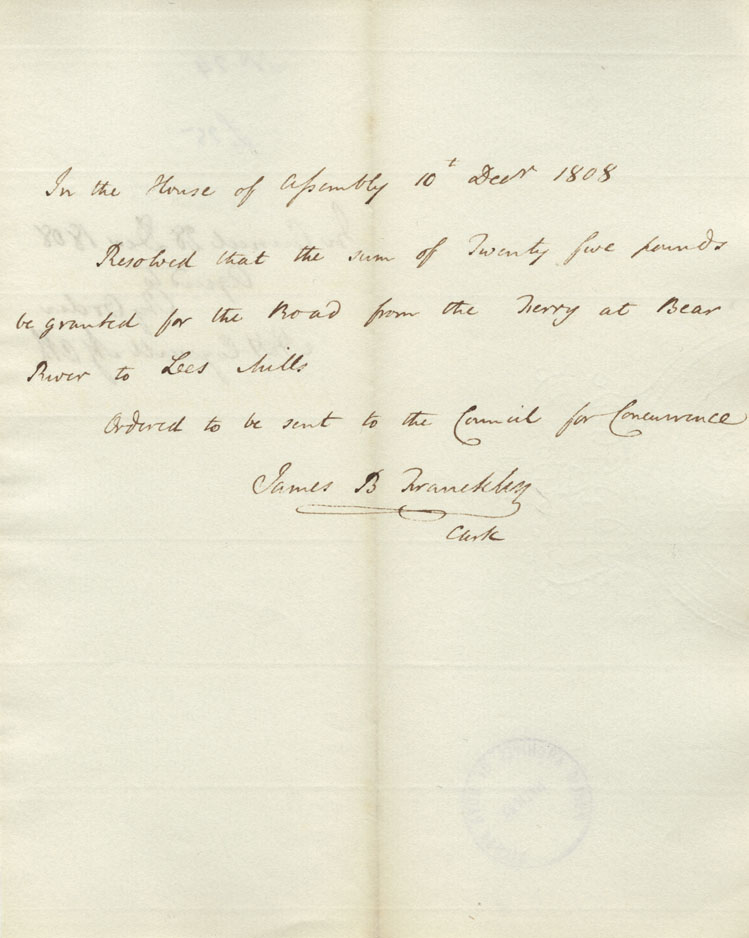 In the House of Assembly 10t Decr 1808
Resolved that the sum of Twenty five pounds
be granted for the Road from the Ferry at Bear
River to Lees Mills
Ordered to be sent to the Council for Concurrence
James B Francklin
Clerk